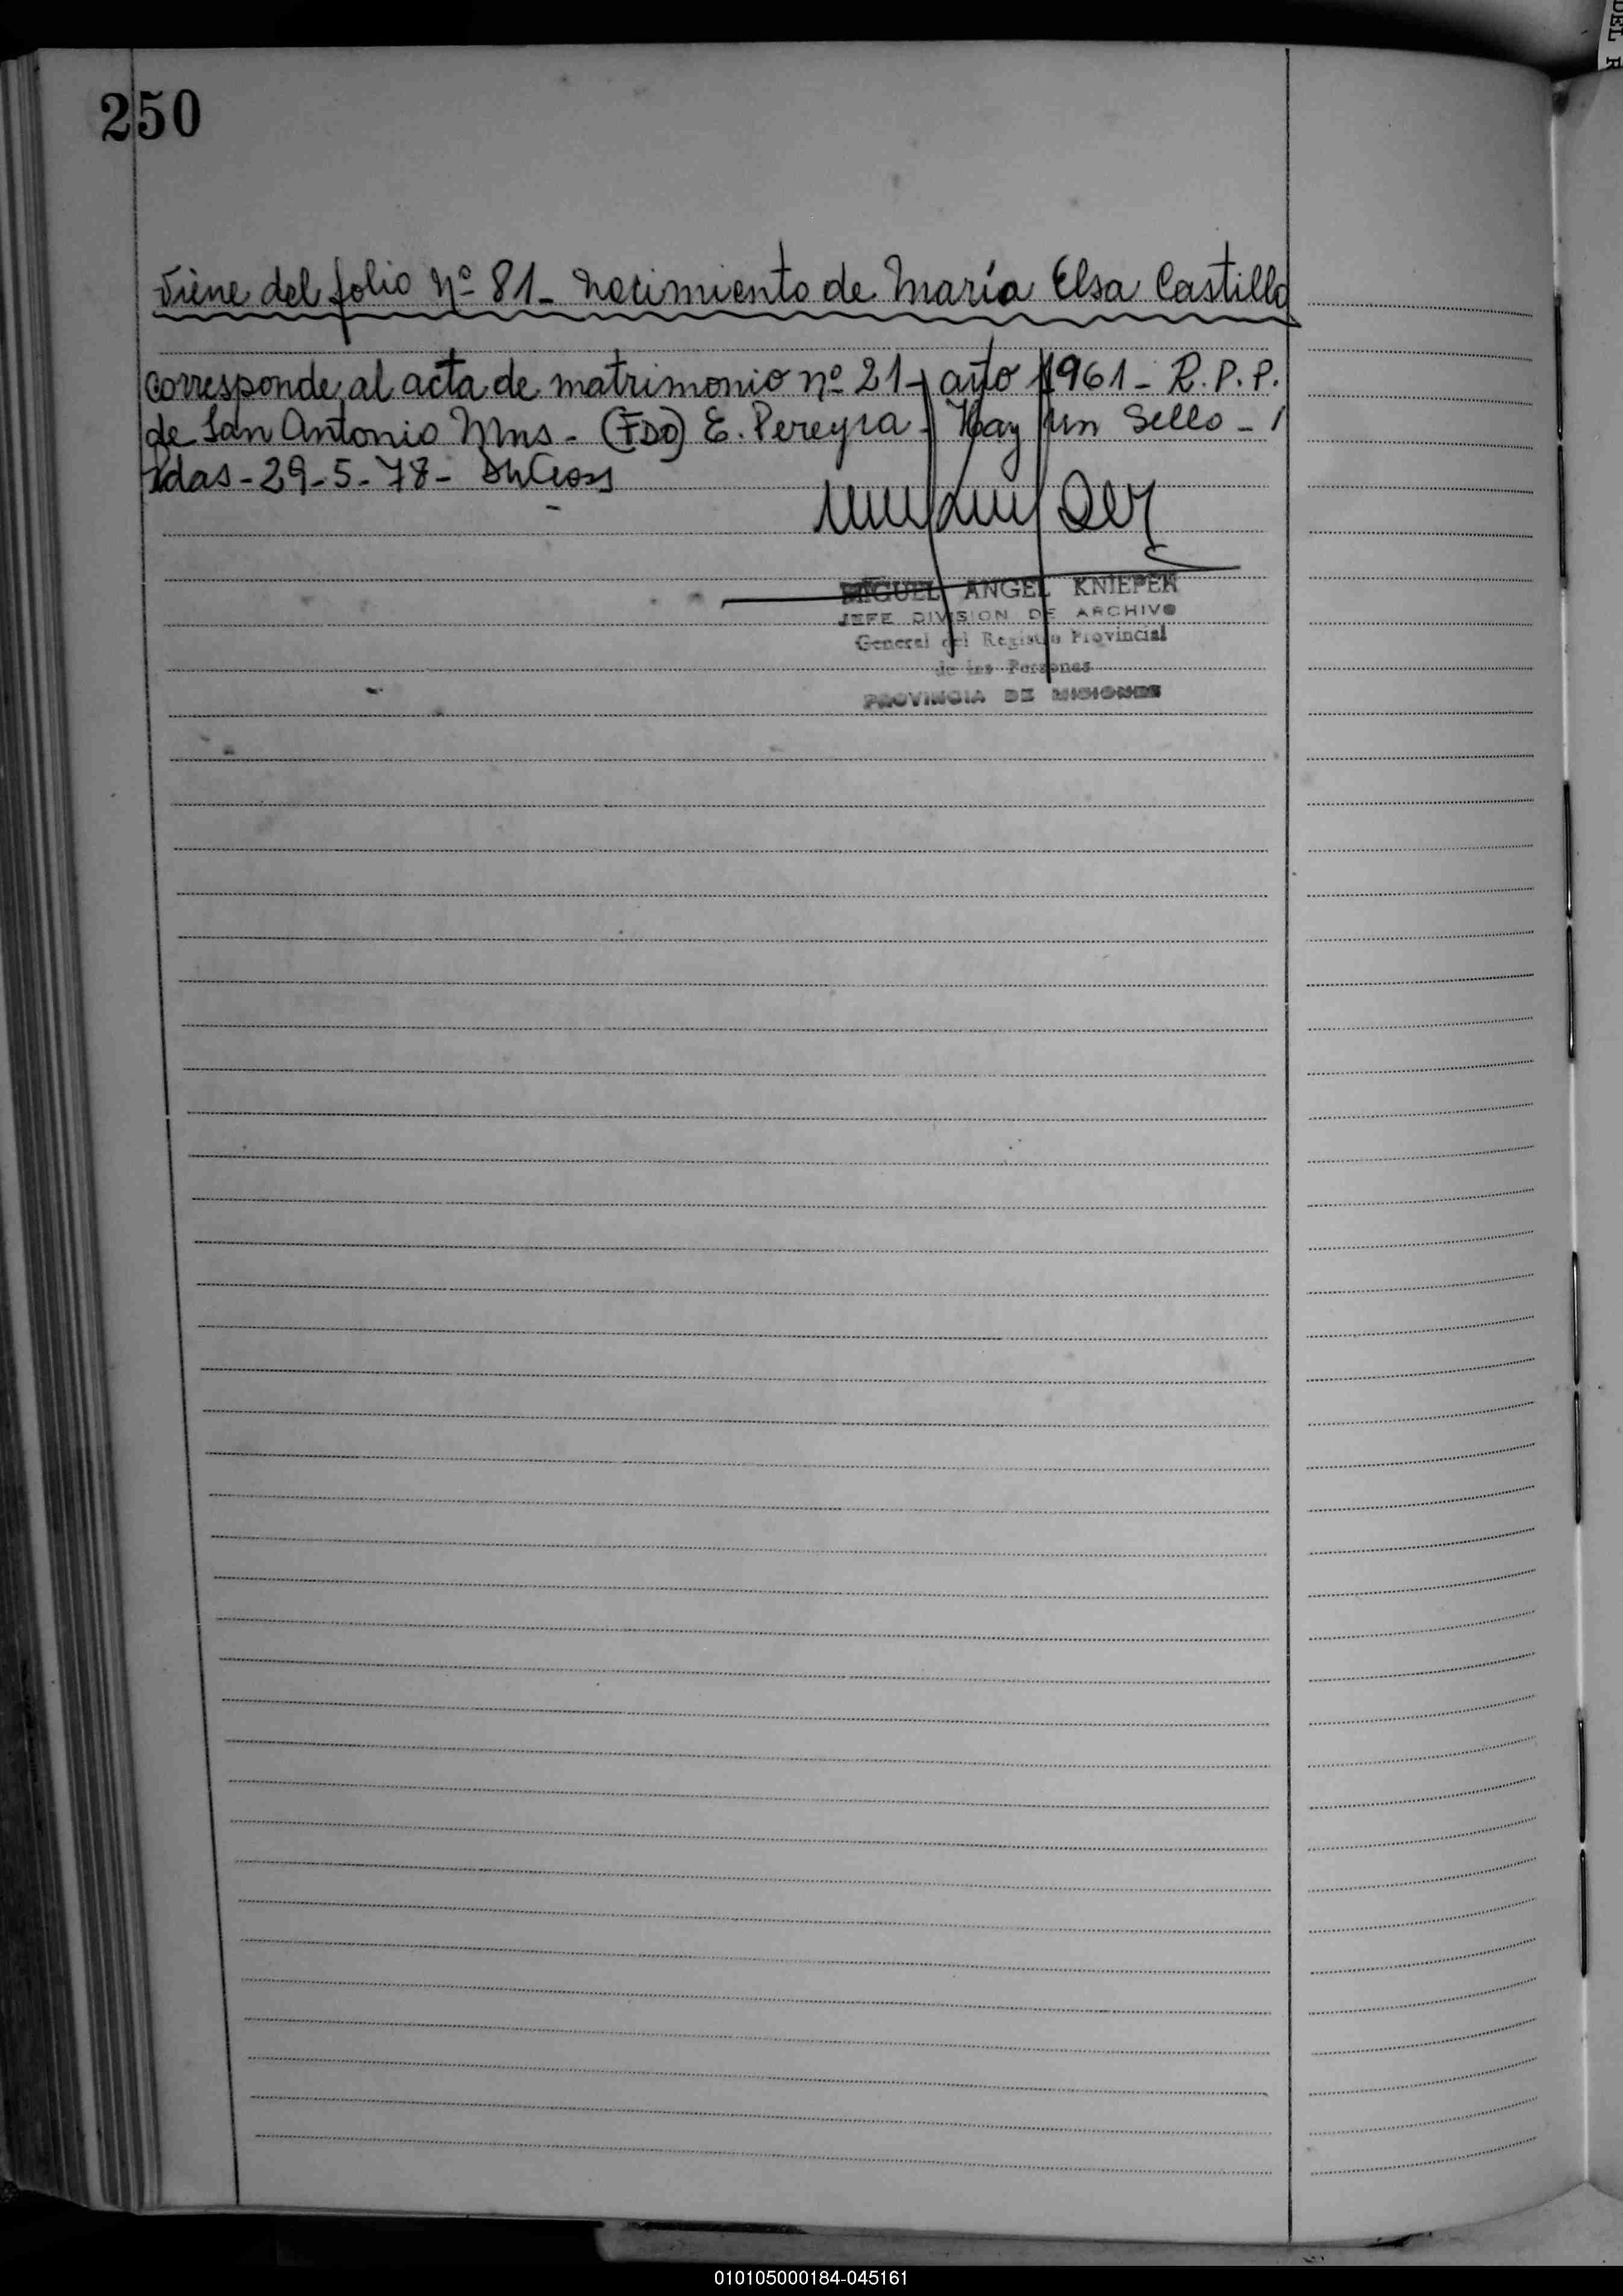 250
Viene del folio Nº 81- Nacimiento de María Elsa Castillo
corresponde al acta de matrimonio nº 21- año 1961- R.P.P.
de San Antonio Mns- (FDO) E. Pereyra- Hay un Sello- /
Pdas-29-5-78-
MIGUEL ANGEL KNIEPER
JEFE DIVISION DE ARCHIVO
General del Registro Provincial
de las Personas
PROVINCIA DE MISIONES
010105000184-045161